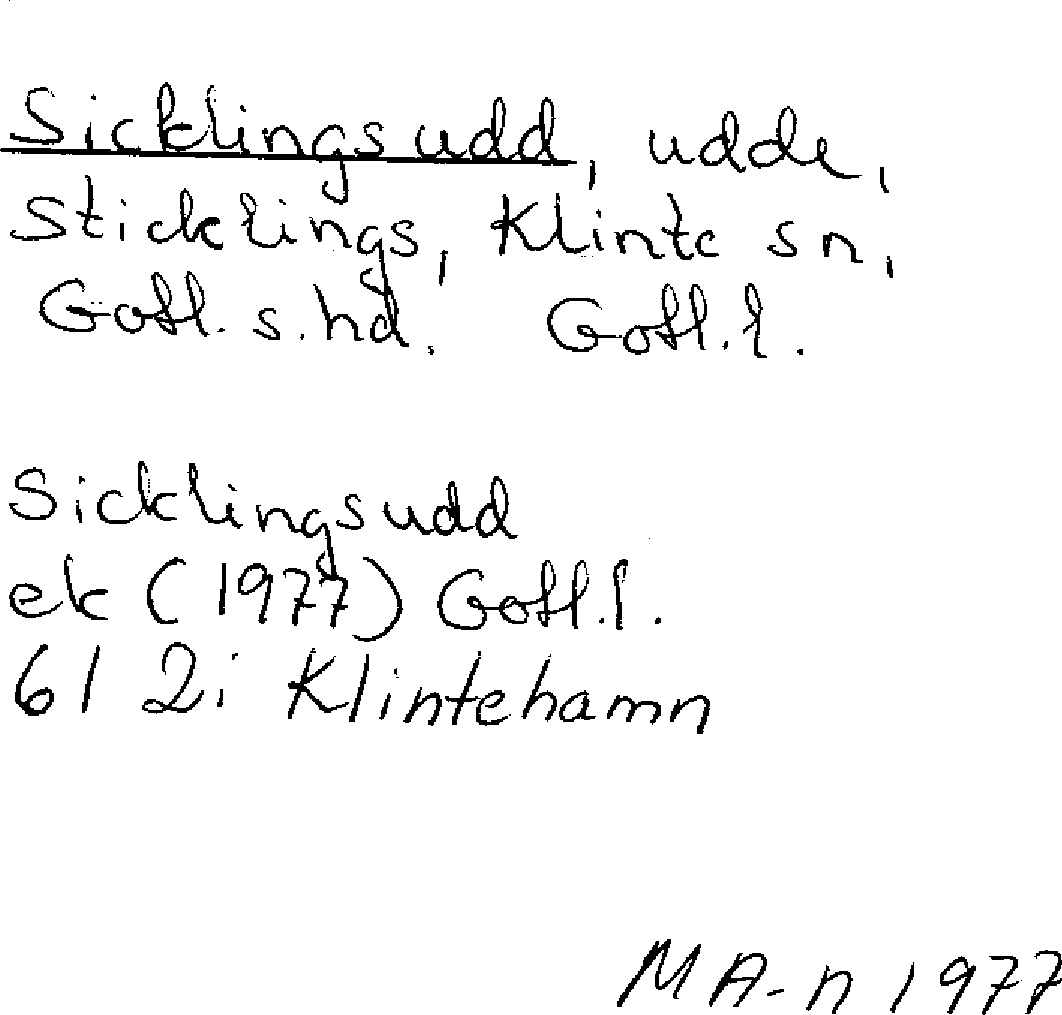 Sicklingsudd, udde,
Sticklings, Klinte sn,
Gotl. s. hd. Gotl. l.
Sicklingsudd
ek (1977) Gotl. l.
6I 2i Klintehamn
MA-n 1977